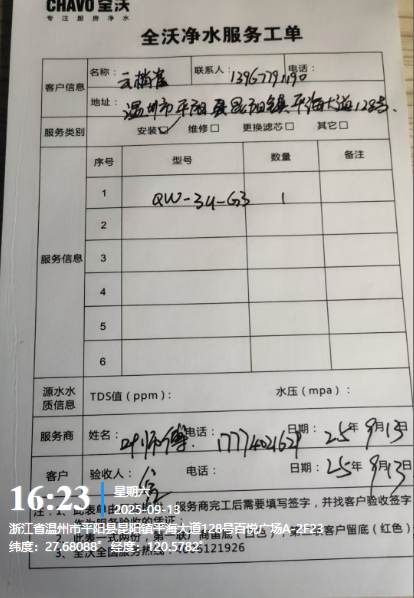 CHAVO 全沃
专注厨房净水
全沃净水服务工单
客户信息
名称：云梢雀 联系人： 电话：
地址：温州市平阳县昆阳镇平海大道128号
服务类别 安装☑ 维修□ 更换滤芯□ 其它□
服务信息
序号 型号 数量 备注
1 QW-34-G3 1
2
3
4
5
6
源水水质信息 TDS值（ppm）： 水压（mpa）：
服务商 姓名：叶师傅 电话： 日期：25年9月13日
客户 验收人： 电话： 日期：25年9月13日
服务商完工后需要填写签字，并找客户验收签字
16:23
星期六
2025-09-13
浙江省温州市平阳县昆阳镇平海大道128号百悦广场A-2F23
纬度：27.68088° 经度：120.5782°